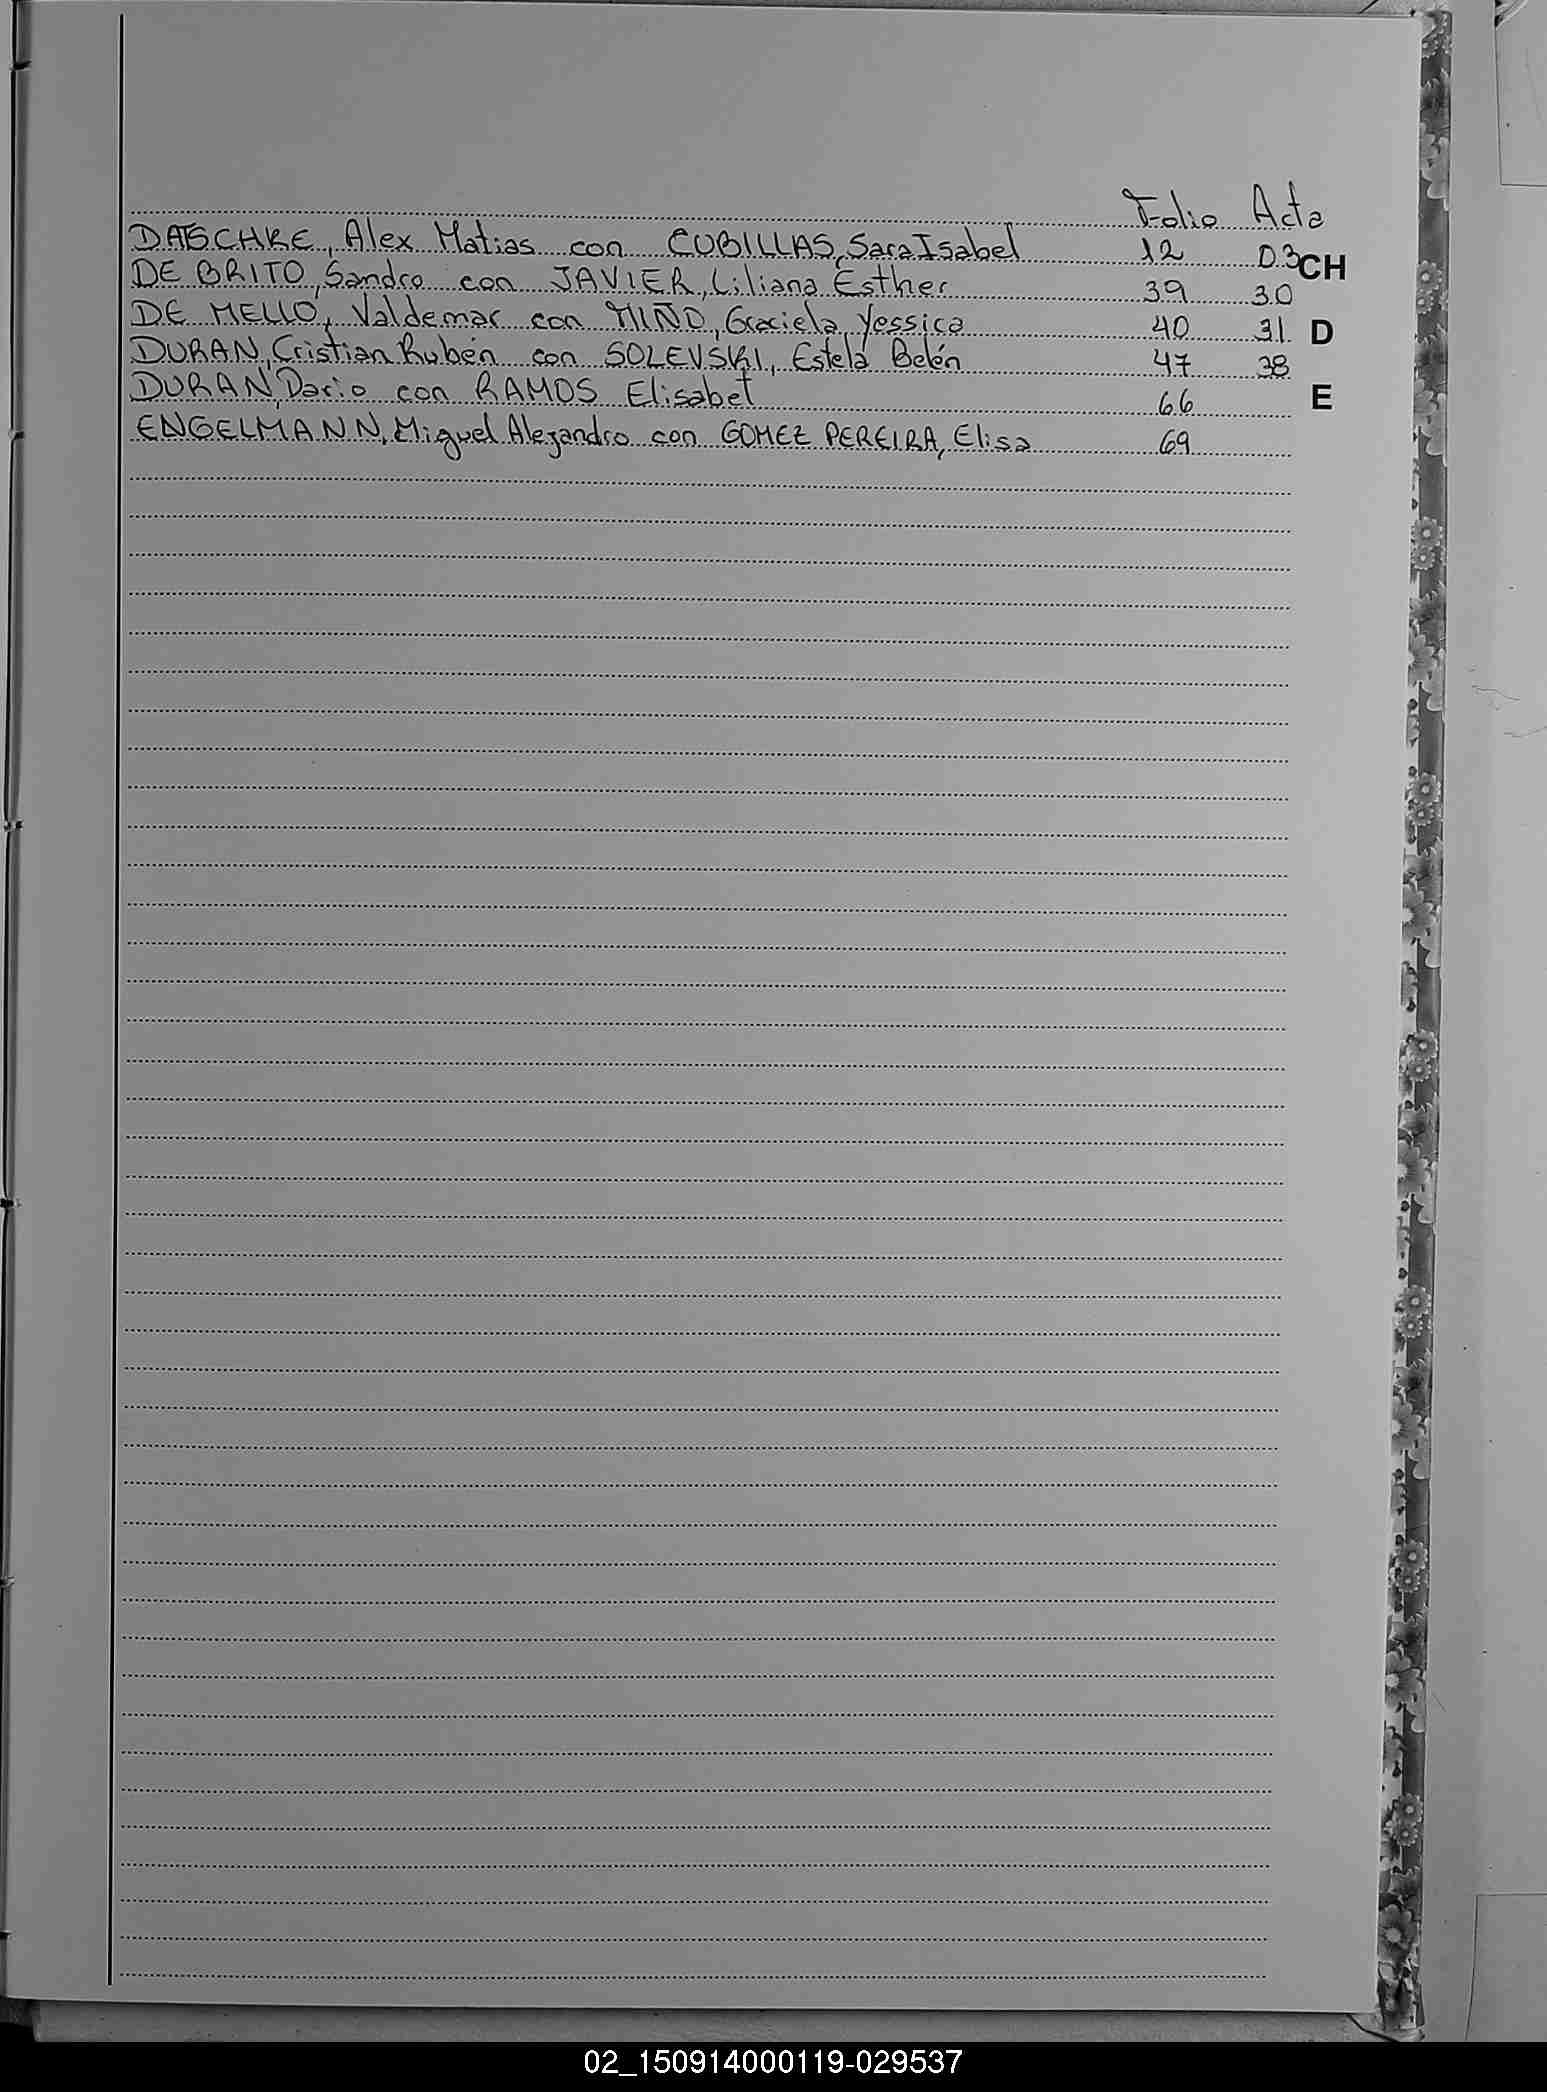 Folio Acta
DATSCHKE, Alex Matias con CUBILLAS, Sara Isabel 12 03 CH
DE BRITO, Sandro con JAVIER, Liliana Esther 39 30
DE MELLO, Valdemar con MIÑO, Graciela Yessica 40 31 D
DURAN, Cristian Rubén con SOLEVSKI, Estela Belén 47 38
DURAN, Dario con RAMOS Elisabet 66 E
ENGELMANN, Miguel Alejandro con GOMEZ PEREIRA, Elisa 69
02_150914000119-029537